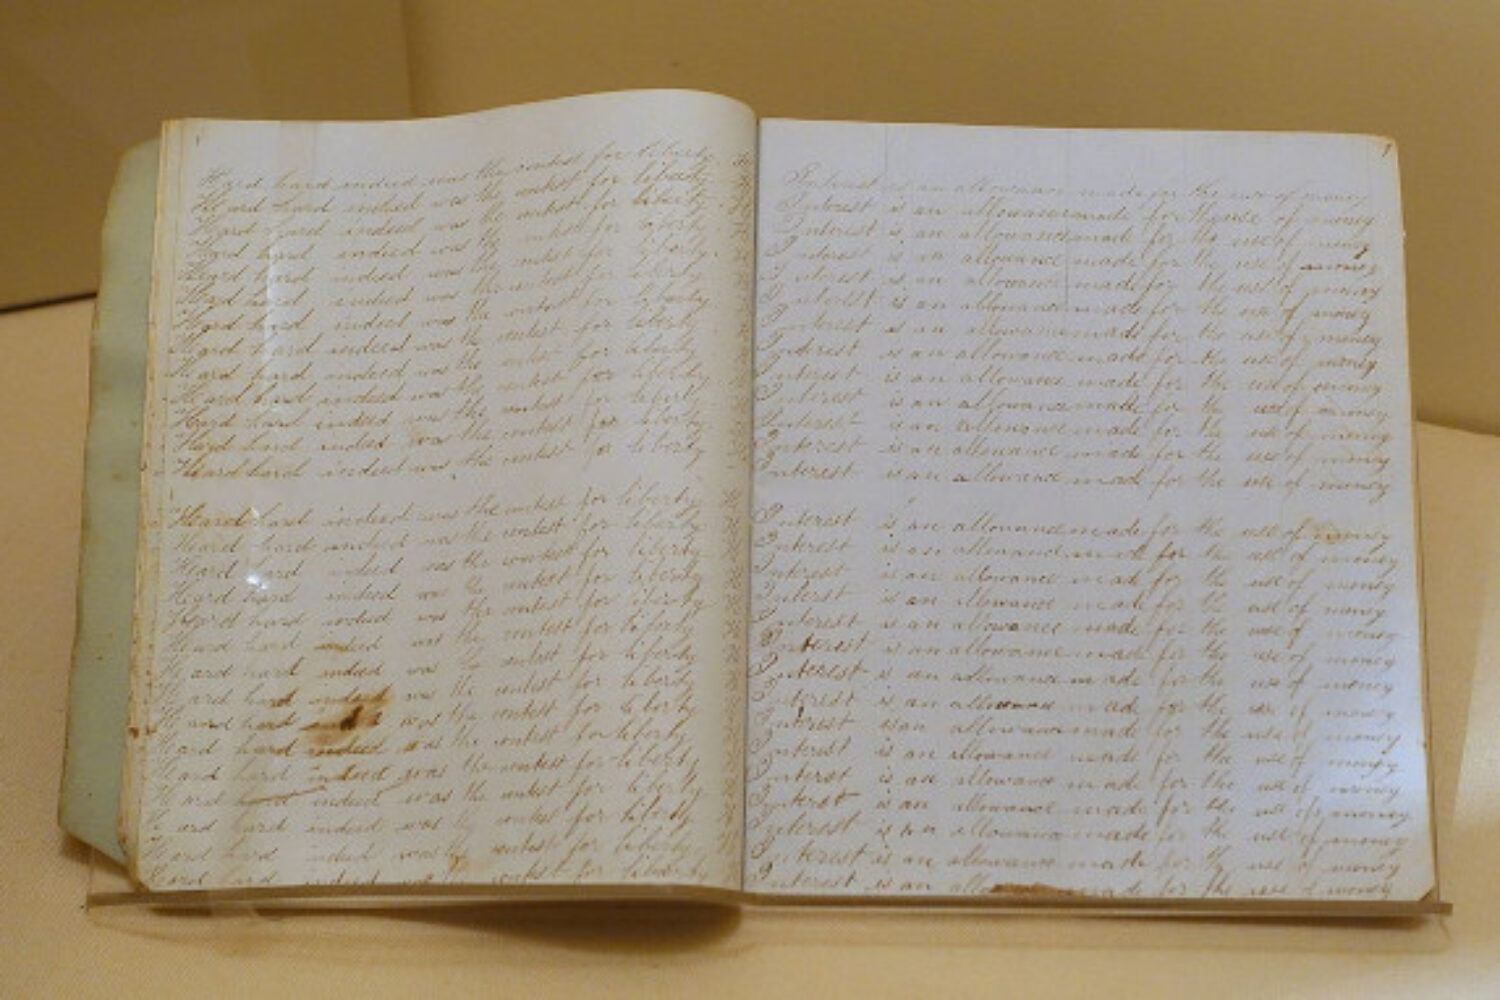 Hard hard indeed was the contest for liberty. H
Hard hard indeed was the contest for liberty. H
Hard hard indeed was the contest for liberty. H
Hard hard indeed was the contest for liberty.
Hard hard indeed was the contest for liberty.
Hard hard indeed was the contest for liberty
Hard hard indeed was the contest for liberty
Hard hard indeed was the contest for liberty
Hard hard indeed was the contest for liberty
Hard hard indeed was the contest for liberty
Hard hard indeed was the contest for libert
Hard hard indeed was the contest for liberty
Hard hard indeed was the contest for liberty
Hard hard indeed was the contest for liberty H
Hard hard indeed was the contest for liberty H
Hard hard indeed was the contest for liberty H
Hard hard indeed was the contest for liberty H
Hard hard indeed was the contest for liberty H
Hard hard indeed was the contest for liberty H
Hard hard indeed was the contest for liberty H
Hard hard indeed was the contest for liberty H
Hard hard was the contest for liberty H
Hard hard indeed was the contest for liberty H
Hard hard indeed was the contest for liberty H
Hard hard indeed was the contest for liberty H
Hard hard indeed was the contest for liberty H
Hard hard indeed was the contest for liberty H
Hard hard indeed was the contest for liberty
Interest is an allowance made for the use of money
Interest is an allowance made for the use of money
Interest is an allowance made for the use of money
Interest is an allowance made for the use of money
Interest is an allowance made for the use of money
Interest is an allowance made for the use of money
Interest is an allowance made for the use of money
Interest is an allowance made for the use of money
Interest is an allowance made for the use of money
Interest is an allowance made for the use of money
Interest is an allowance made for the use of money
Interest is an allowance made for the use of money
Interest is an allowance made for the use of money
Interest is an allowance made for the use of money
Interest is an allowance made for the use of money
Interest is an allowance made for the use of money
Interest is an allowance made for the use of money
Interest is an allowance made for the use of money
Interest is an allowance made for the use of money
Interest is an allowance made for the use of money
Interest is an allowance made for the use of money
Interest is an allowance made for the use of money
Interest is an allowance made for the use of money
Interest is an allowance made for the use of money
Interest is an allowance made for the use of money
Interest is an allowance made for the use of money
Interest is an allowance made for the use of money
Interest is an made for the use of money